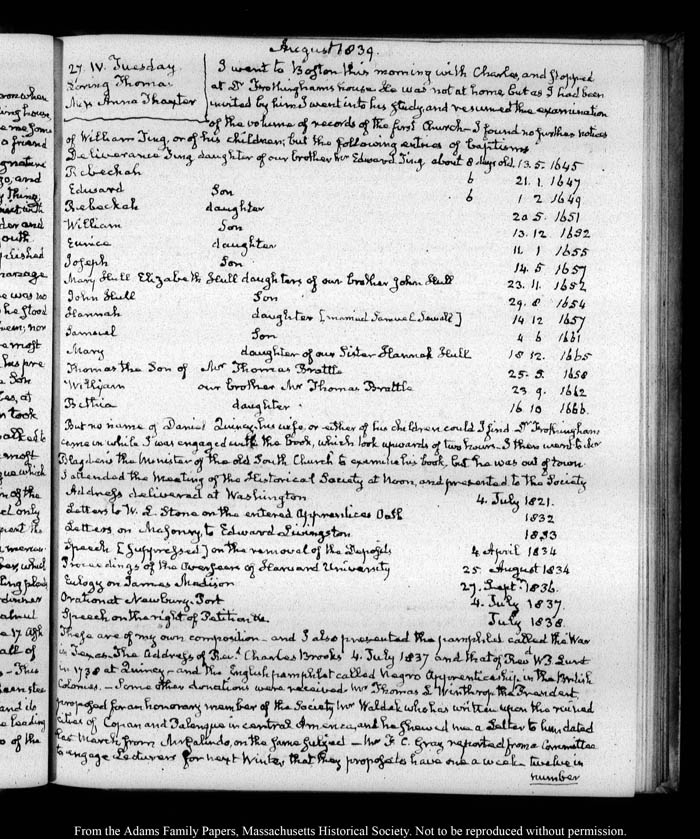 August 1839.
27. IV. Tuesday
Loring Thomas
Mrs Anna Thaxter
I went to Boston this morning with Charles, and stopped
at Dr Frothingham's house. He was not at home but as I had been
invited by him I went into his study, and resumed the examination
of the volume of records of the first Church— I found no further notices
of William Ting, or of his children; but the following entries of baptisms
Deliverance Ting daughter of our brother Mr Edward Ting about 8 days old. 13. 5. 1645
Rebeckah 6 21. 1. 1647
Edward Son 6 1 2. 1649
Rebeckah daughter 20 5. 1651
William Son 13. 12. 1652
Eunice daughter 11. 1 1655
Joseph Son 14. 5 1657
Mary Hull Elizabeth Hull daughters of our brother John Hull 23. 11. 1652
John Hull Son 29. 8 1654
Hannah daughter [married Samuel Sewall] 14 12 1657
Samuel Son 4 6 1661
Mary daughter of our Sister Hannah Hull 18 12. 1665
Thomas the Son of Mr Thomas Brattle 25. 5. 1658
William our brother Mr Thomas Brattle 23. 9. 1662
Bethia daughter 16 10 1666.
But no name of Daniel Quincy, his wife, or either of his children could I find Dr Frothingham
came in while I was engaged with the book, which took upwards of two hours. I then went to
Blagden's the Minister of the old South Church to examine his book, but he was out of town
I attended the meeting of the Historical Society at Noon, and presented to the Society
Address delivered at Washington 4. July 1821.
Letters to W. L. Stone on the entered Apprentices Oath 1832
Letters on Masonry, to Edward Livingston 1833
Speech [Suppressed] on the removal of the Deposits 4 April 1834
Proceedings of the Overseers of Harvard University 25. August 1834
Eulogy on James Madison 27. Sept. 1836.
Oration at Newbury-Port 4. July 1837.
Speech on the right of Petition &c July 1838.
These are of my own composition— and I also presented the pamphlet called the War
in Texas. The Address of Revd Charles Brooks 4. July 1837 and that of Revd W. P. Lunt
in 1738 at Quincy— and the English pamphlet called Negro Apprenticeship in the British
Colonies.— Some other donations were received Mr Thomas L. Winthrop the President,
proposed for an honorary member of the Society Mr Waldek who has written upon the ruined
cities of Copan and Palenque in central America, and he shewed me a Letter to him dated
last March from Mr Galindo, on the same subject— Mr F. C. Gray reported from a Committee
to engage Lecturers for next Winter, that they propose to have one a week twelve in
number
From the Adams Family Papers, Massachusetts Historical Society. Not to be reproduced without permission.